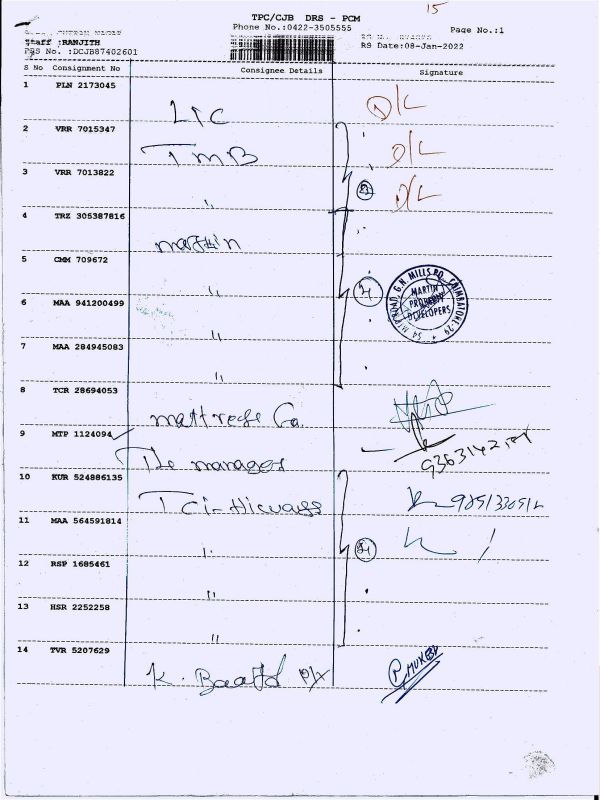 15
TPC/CJB DRS - PCM
Phone No.:0422-3505555
Page No.:1
Staff :RANJITH
No. :DCJB87402601
RS Date:08-Jan-2022
S No Consignment No Consignee Details Signature
1 PLN 2173045
LIC D/L
2 VRR 7015347
TMB D/L
3 VRR 7013822
" D/L
4 TRZ 305387816
martin
5 CMM 709672
"
6 MAA 941200499
"
7 MAA 284945083
"
MARTIN
DEVELOPERS
8 TCR 28694053
mattress Co.
9 MTP 1124094
The manager
10 KUR 524886135
11 MAA 564591814
"
12 RSP 1685461
"
13 HSR 2252258
"
14 TVR 5207629
K.